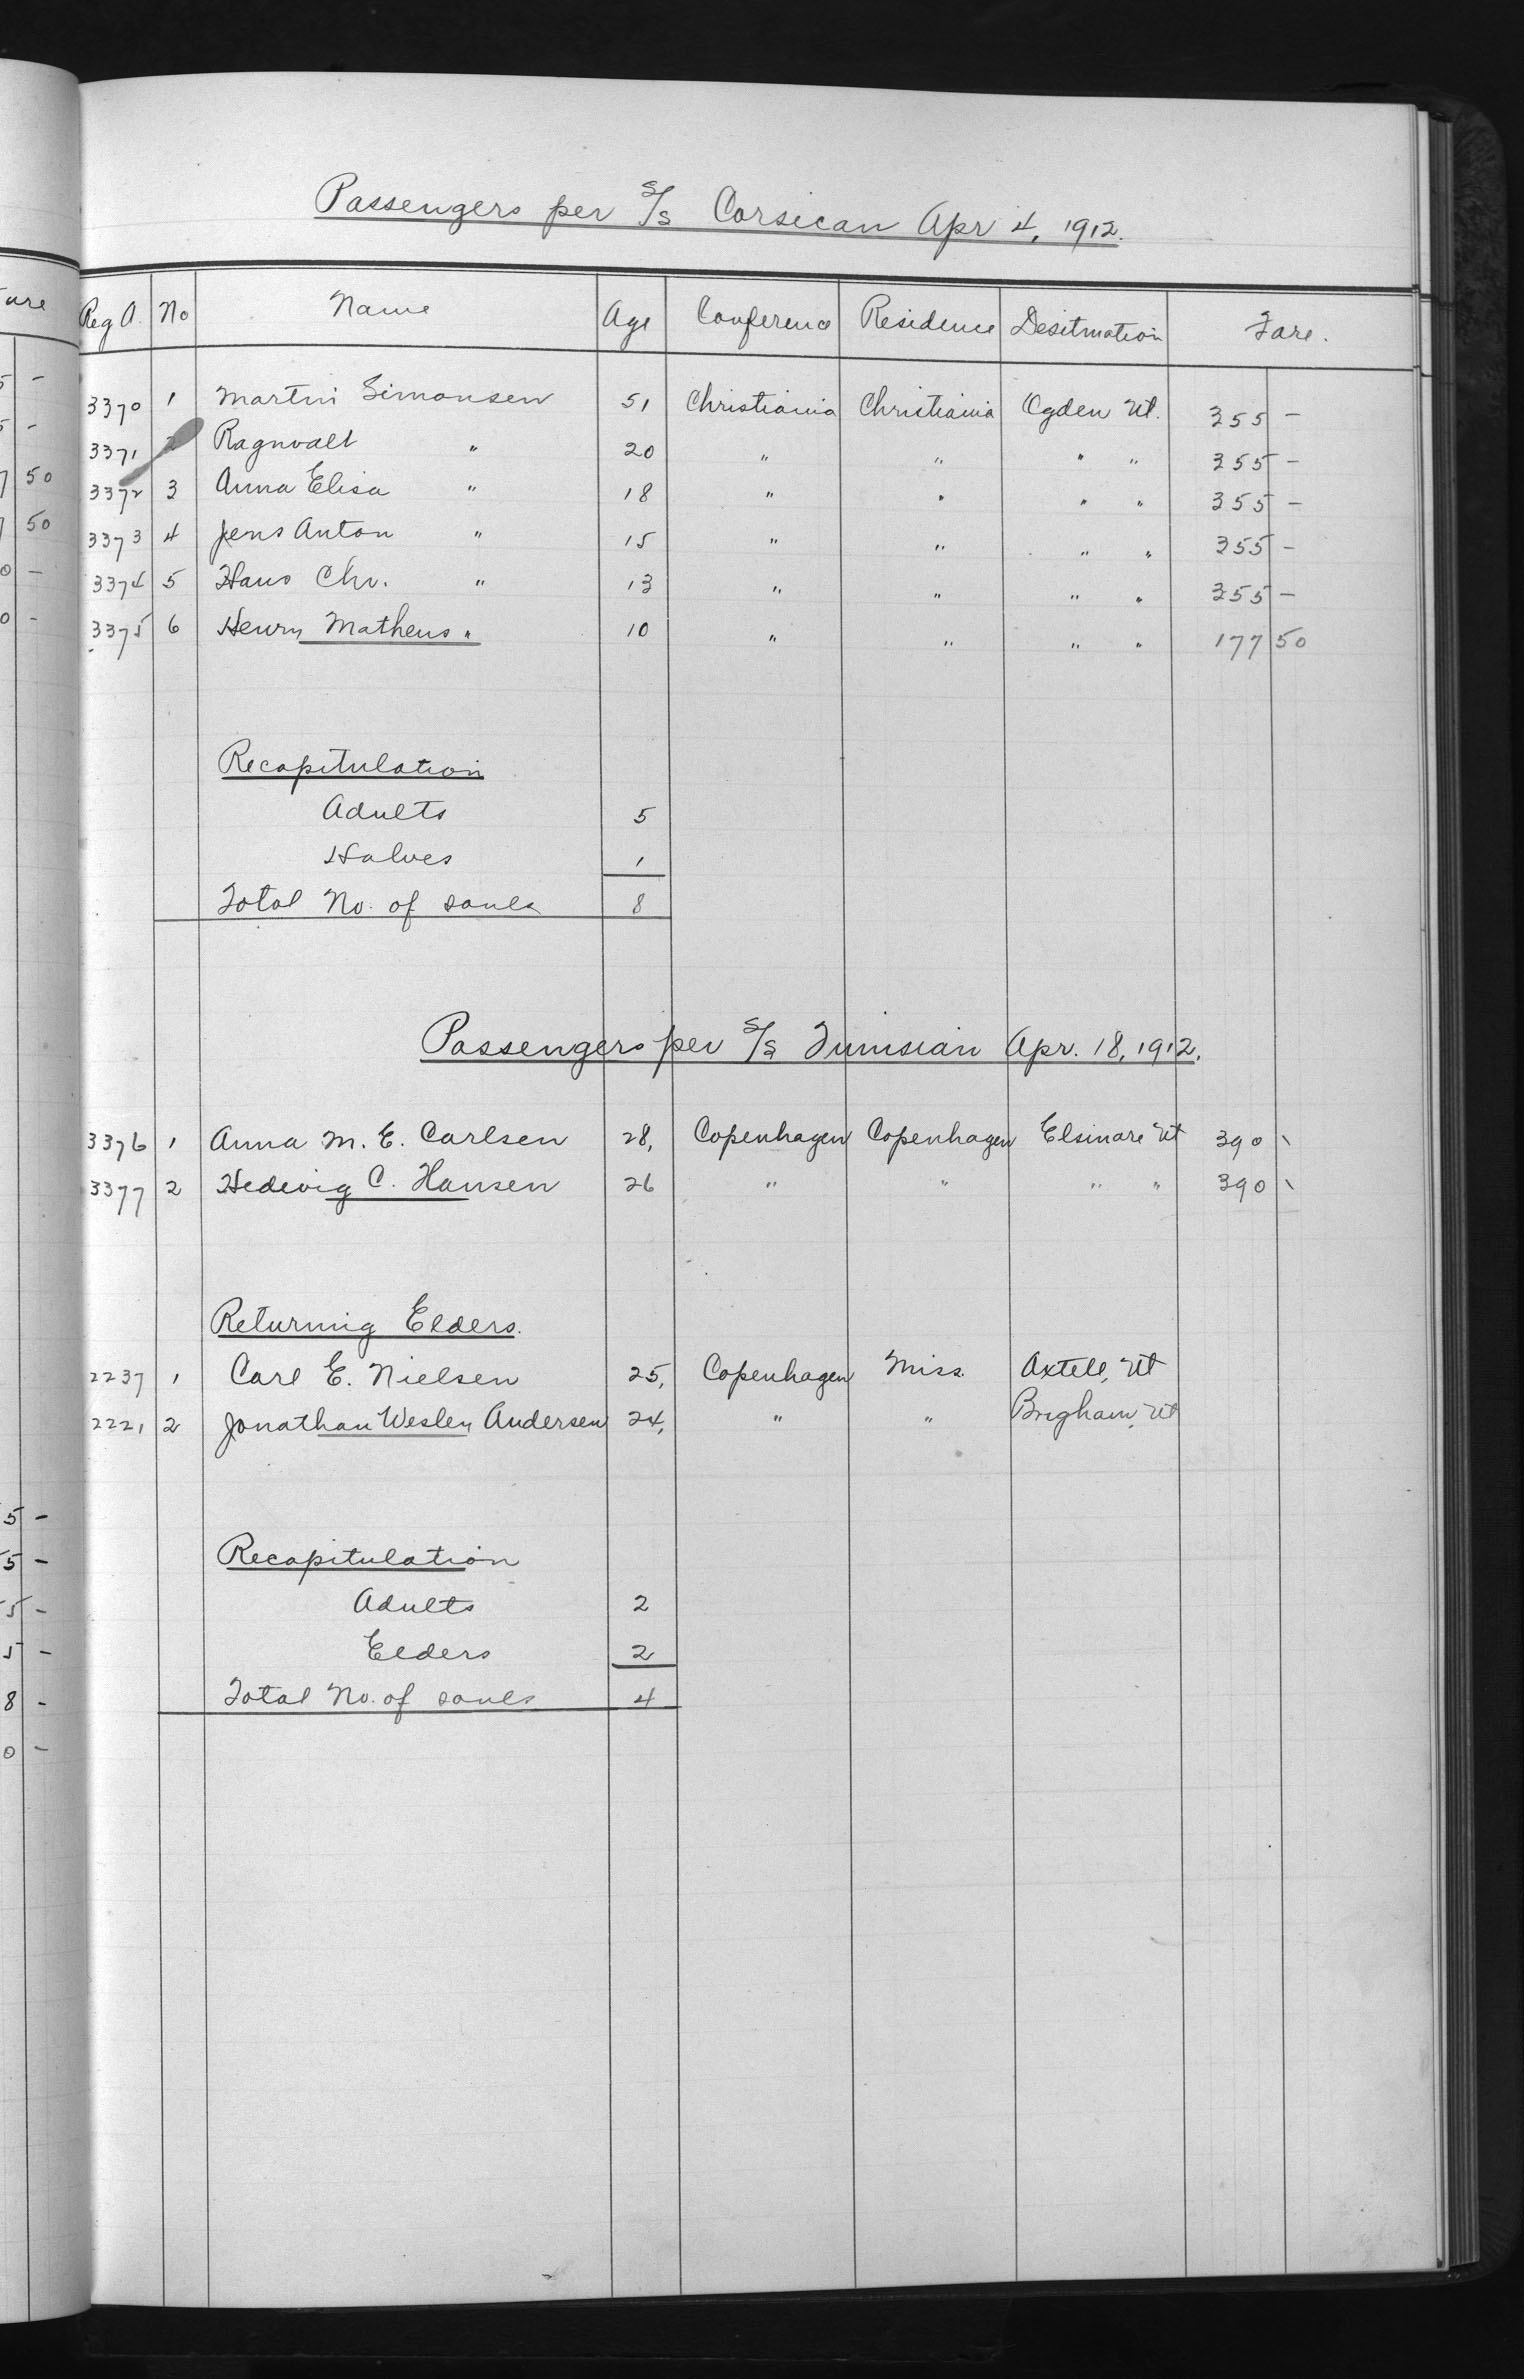 Passengers per S/S Corsican Apr 4, 1912.
Reg A. No Name Age Conference Residence Desitnation Fare.
3370 1 Martin Simonsen 51 Christiania Christiania Ogden Ut. 355 -
3371 2 Ragnvalt " 20 " " " " 355 -
3372 3 Anna Elisa " 18 " " " " 355 -
3373 4 Jens Anton " 15 " " " " 355 -
3374 5 Hans Chr. " 13 " " " " 355 -
3375 6 Henry Matheus " 10 " " " " 177 50
Recapitulation
Adults 5
Halves 1
Total No. of souls 8
Passengers per S/S Tunisian Apr. 18, 1912.
3376 1 Anna M. E. Carlsen 28, Copenhagen Copenhagen Elsinore Ut 390 -
3377 2 Hedevig C. Hansen 26 " " " " 390 -
Returning Elders.
2237 1 Carl E. Nielsen 25, Copenhagen Miss. Axtell, Ut
2221 2 Jonathan Wesley Andersen 24, " " Brigham, Ut
Recapitulation
Adults 2
Elders 2
Total No. of souls 4